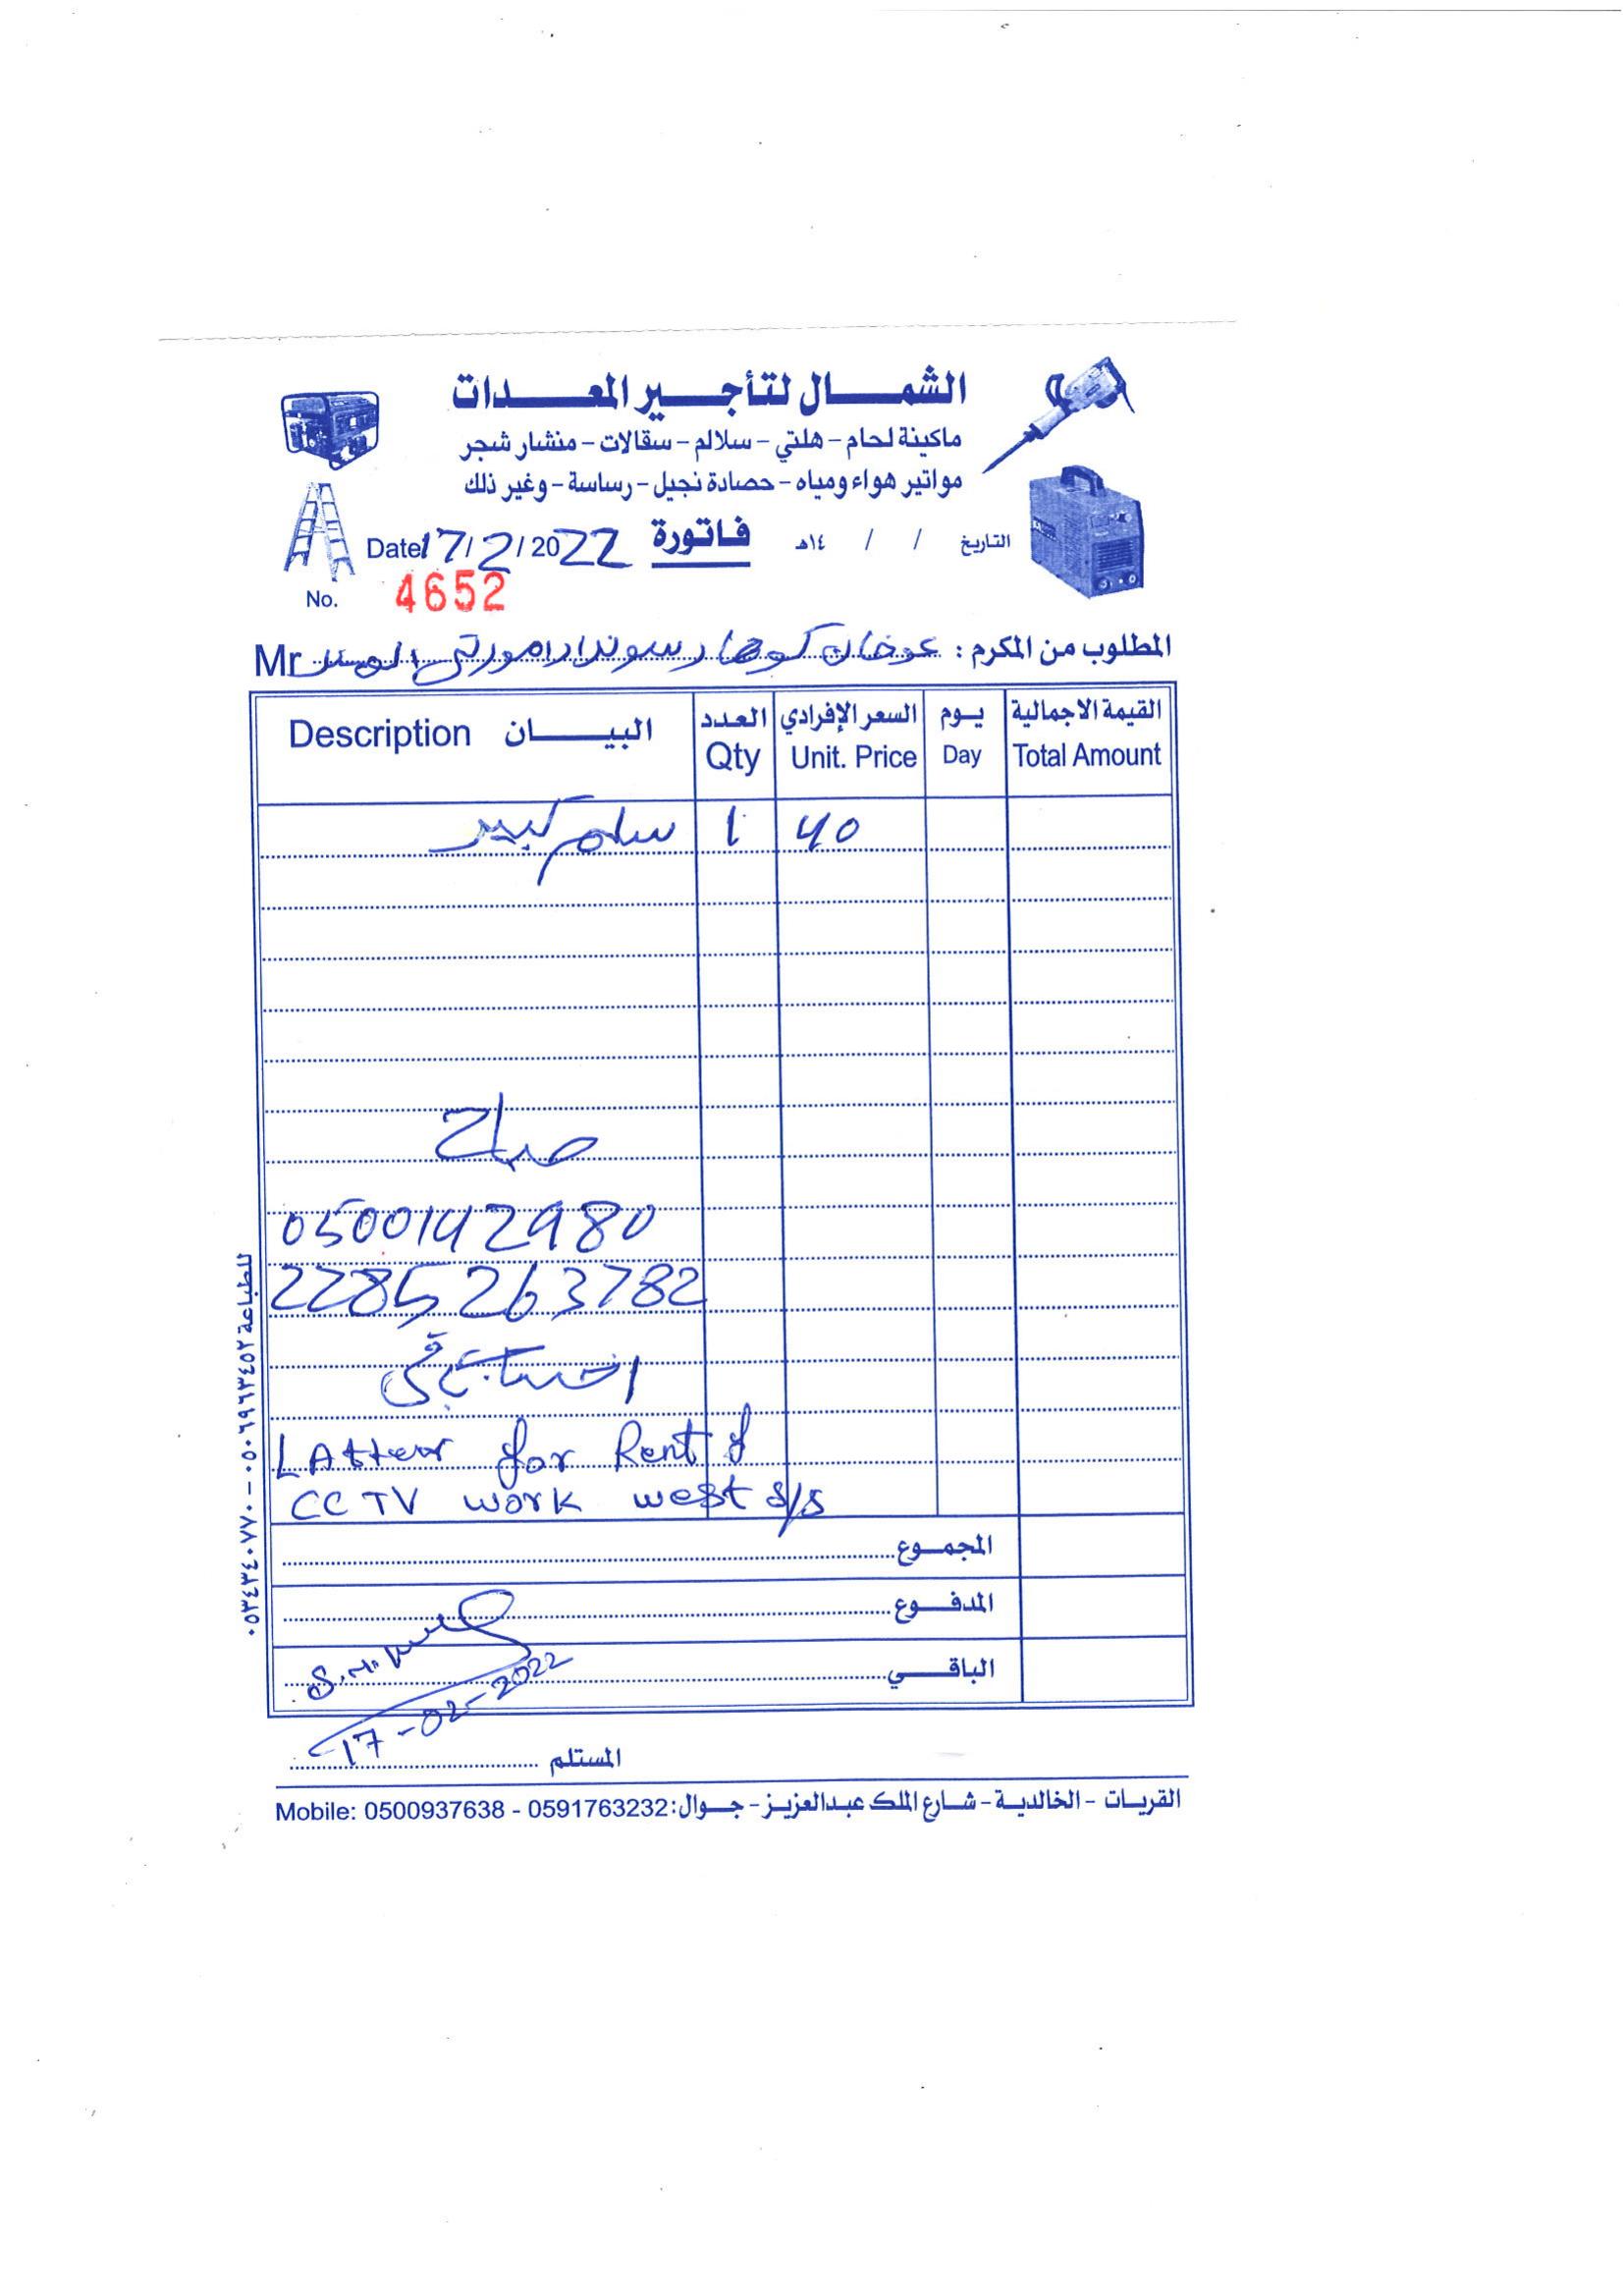 الشمال لتأجير المعدات
ماكينة لحام - هلتي - سلالم - سقالات - منشار شجر
مواتير هواء ومياه - حصادة نجيل - رساسة - وغير ذلك
Date 17/2/2022 فاتورة التاريخ / / ١٤هـ
No. 4652
المطلوب من المكرم : Mr
Description البيـــان العدد Qty السعر الإفرادي Unit. Price يــوم Day القيمة الاجمالية Total Amount
سلم كبير 1 40
صباح
0500142980
2285263782
LAtter for Rent of
CCTV work west s/s
المجمــوع
المدفــوع
الباقــي
17-02-2022
المستلم
القريات - الخالدية - شارع الملك عبدالعزيز - جـوال: Mobile: 0500937638 - 0591763232
للطباعة ٠٥٠٦٩٦٣٤٥٢ - ٠٥٣٤٣٤٠٧٧٠